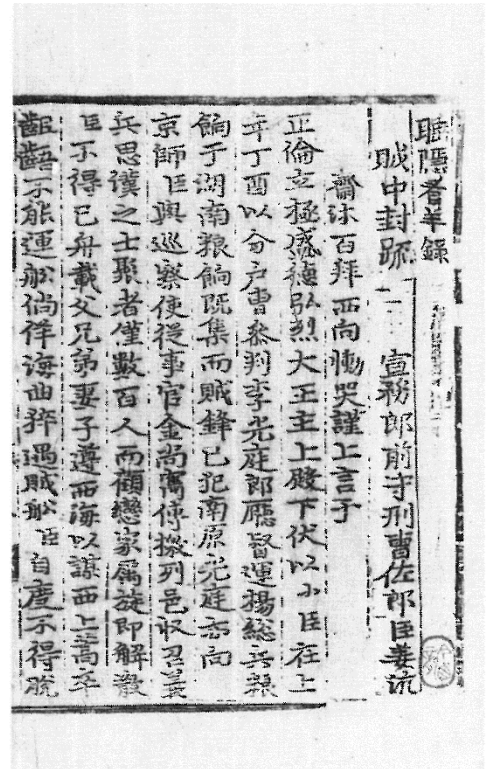 睡隱看羊錄
賊中封疏
宣務郎前守刑曹佐郎臣姜沆
齋沐百拜西向慟哭謹上言于
正倫立極盛德弘烈大王主上殿下伏以小臣在上
年丁酉以分戶曹叅判李光庭郎廳督運揚總兵粮
餉于湖南粮餉旣集而賊鋒已犯南原光庭亦向
京師臣與巡察使從事官金尙寯傳檄列邑收召義
兵思漢之士聚者僅數百人而顧戀家属旋即解散
臣不得已舟載父兄弟妻子遵西海以謀西上蒿卒
齟齬不能運舩倘佯海曲猝遇賊舩臣自度不得脫